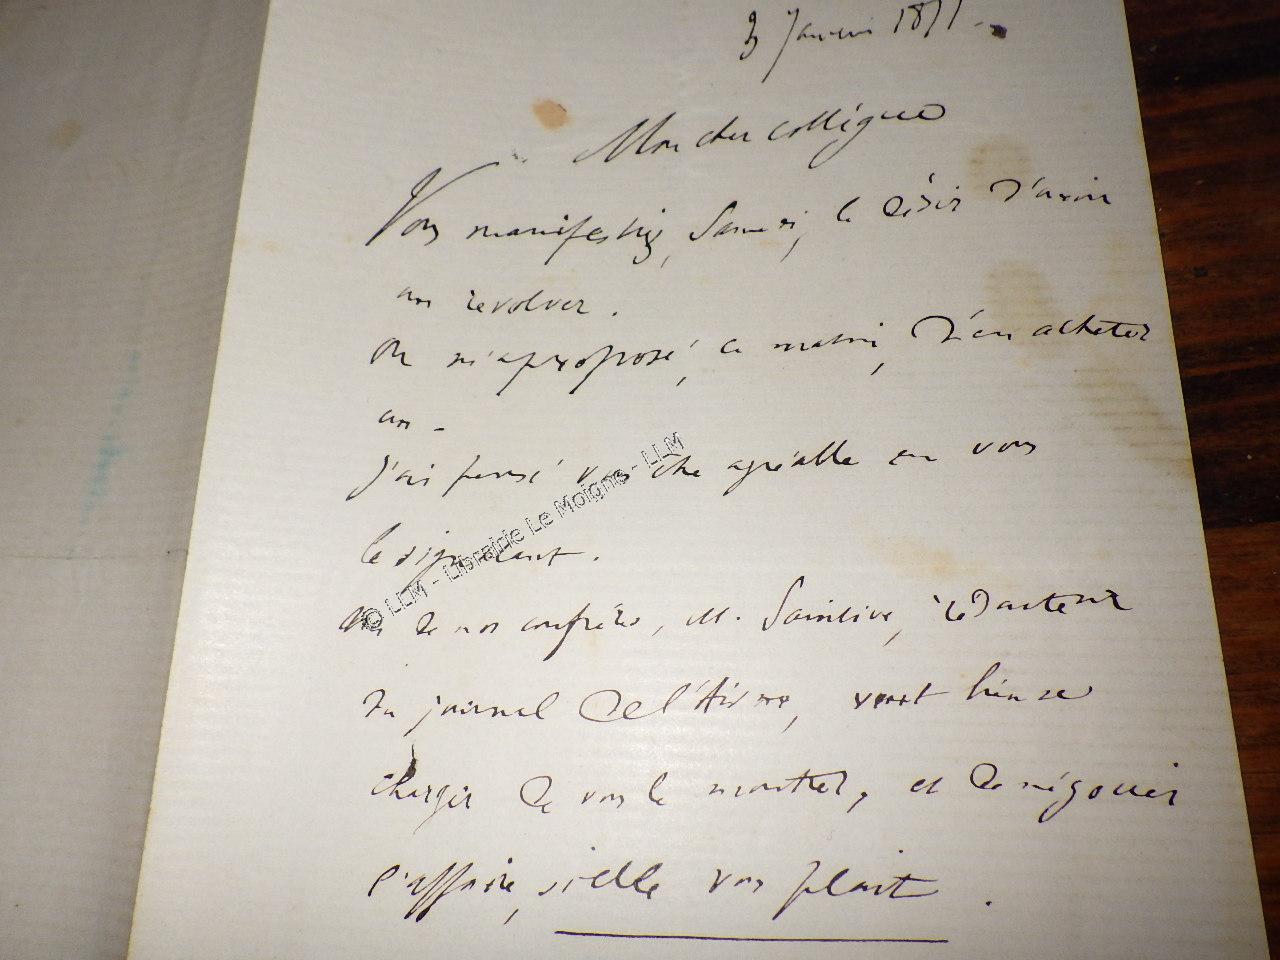 3 Janvier 1871 -
Mon cher collègue
Vous manifestiez, Samedi, le désir d'avoir
un revolver.
On m'a proposé, ce matin, d'en acheter
un -
J'ai pensé vous être agréable en vous
le signalant.
© LLM - Librairie Le Moigne - LLM
Un de nos confrères, M. Sainlive, rédacteur
du journal de l'Aisne, veut bien se
charger de vous le montrer, et de négocier
l'affaire, si elle vous plait.